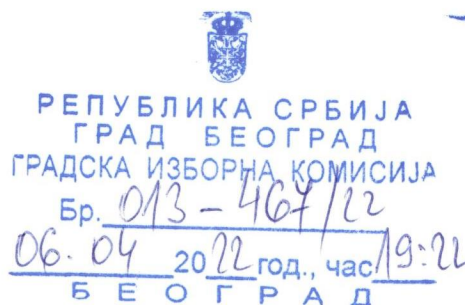 РЕПУБЛИКА СРБИЈА
ГРАД БЕОГРАД
ГРАДСКА ИЗБОРНА КОМИСИЈА
Бр. 013-467/22
06.04 2022 год., час 19:22
БЕОГРАД